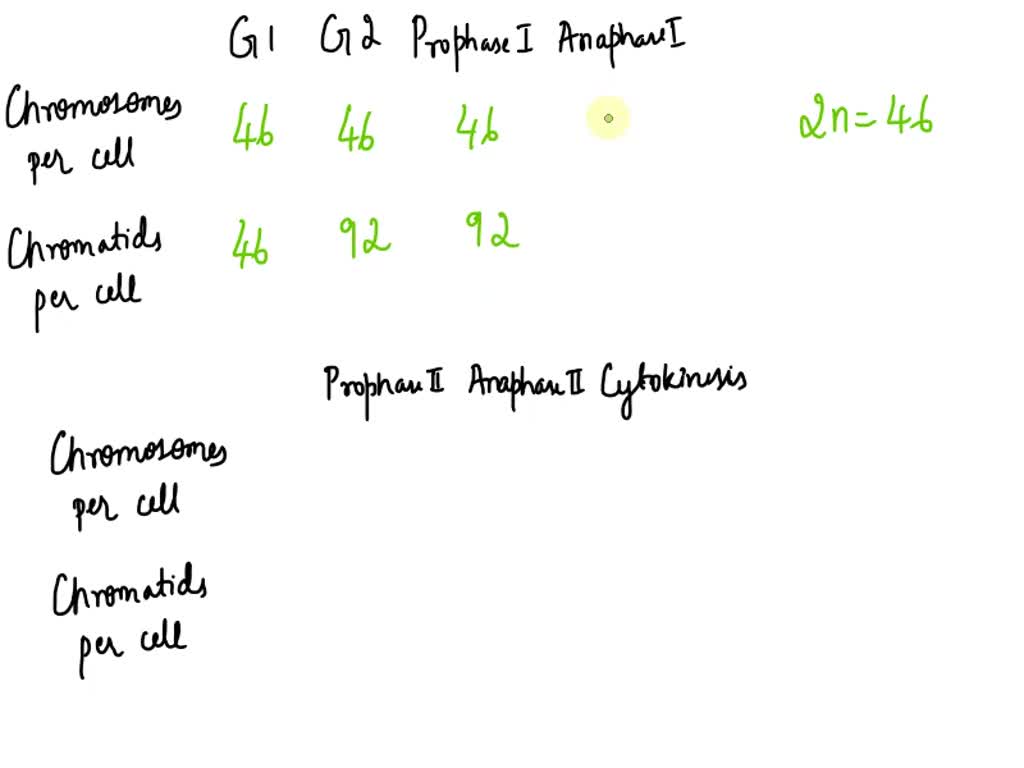 G1 G2 Prophase I Anaphase I
Chromosomes
per cell
46 46 46
2n = 46
Chromatids
per cell
46 92 92
Prophase II Anaphase II Cytokinesis
Chromosomes
per cell
Chromatids
per cell